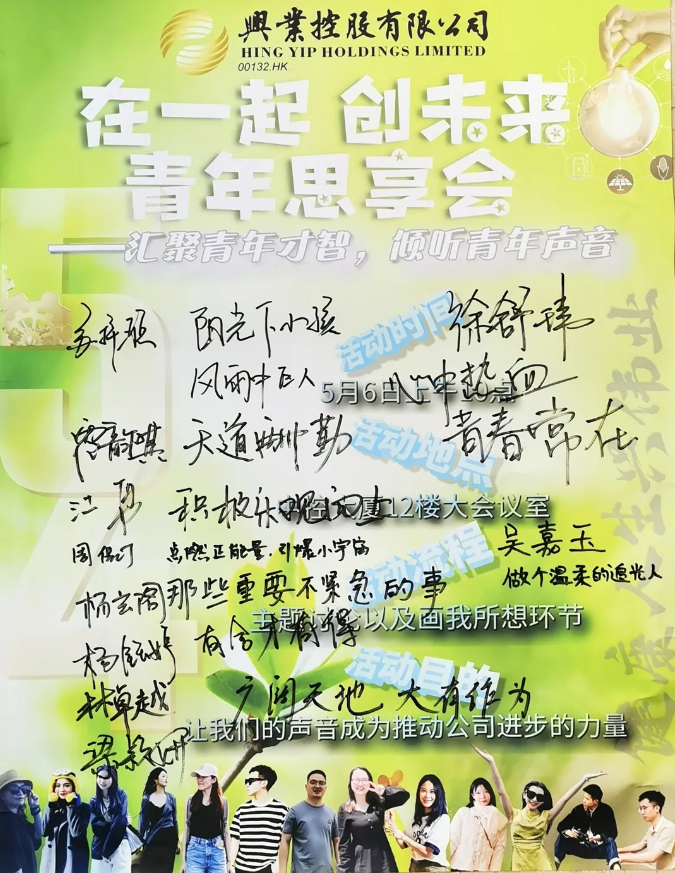 興業控股有限公司
HING YIP HOLDINGS LIMITED
00132.HK
在一起 创未来
青年思享会
——汇聚青年才智，倾听青年声音
活动时间
5月6日上午10点
活动地点
12楼大会议室
活动流程
主题讨论以及画我所想环节
活动目的
让我们的声音成为推动公司进步的力量
阳光下小孩
风雨中巨人
徐舒玮
心中热血
青春常在
天道酬勤
江
积极乐观向上
点燃正能量，引爆小宇宙
吴嘉玉
做个温柔的追光人
杨玄阁 那些重要不紧急的事
有舍才有得
林卓越 广阔天地 大有作为